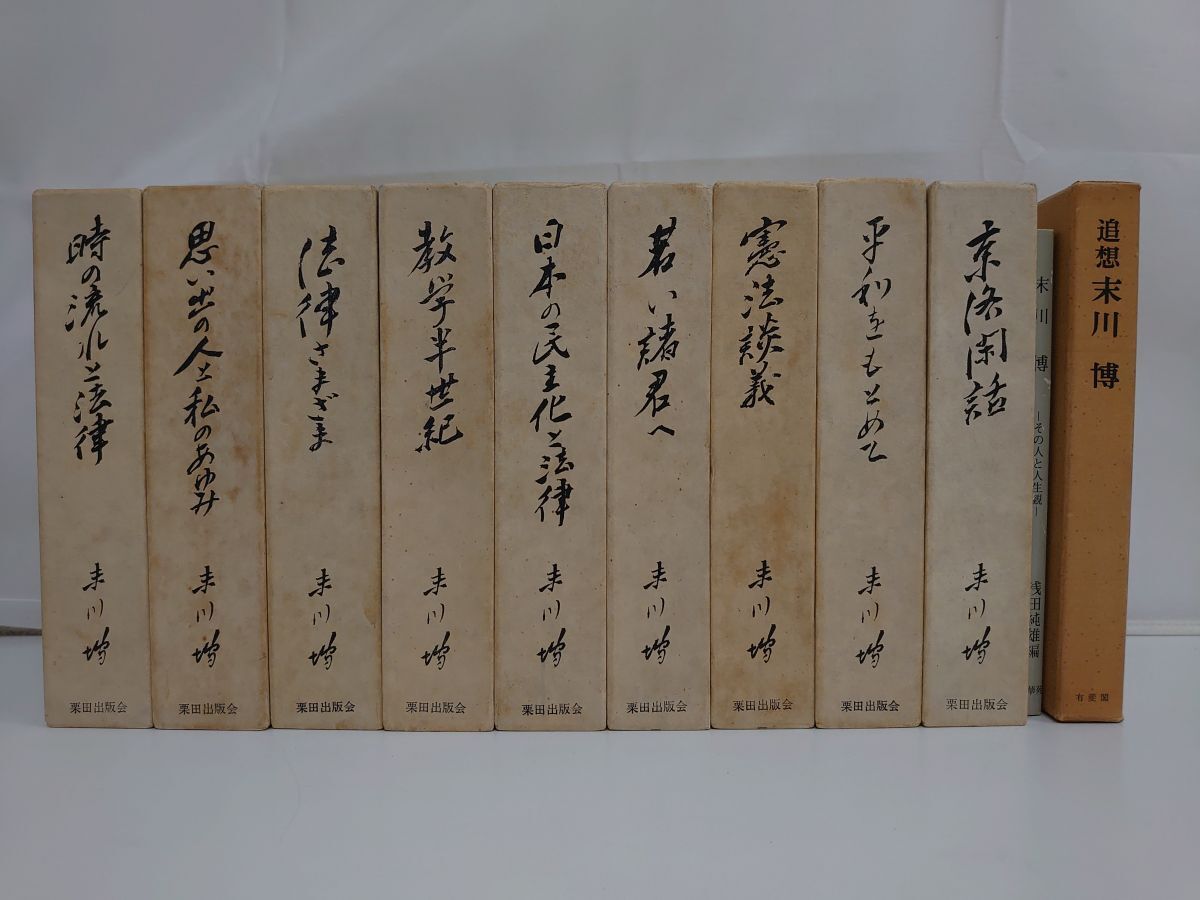 時の流れと法律
末川博
栗田出版会
思い出の人と私のあゆみ
末川博
栗田出版会
法律さまざま
末川博
栗田出版会
教学半世紀
末川博
栗田出版会
日本の民主化と法律
末川博
栗田出版会
若い諸君へ
末川博
栗田出版会
憲法談義
末川博
栗田出版会
平和をもとめて
末川博
栗田出版会
京洛閑話
末川博
栗田出版会
末川博
―その人と人生観―
浅田純雄編
追想 末川 博
有斐閣